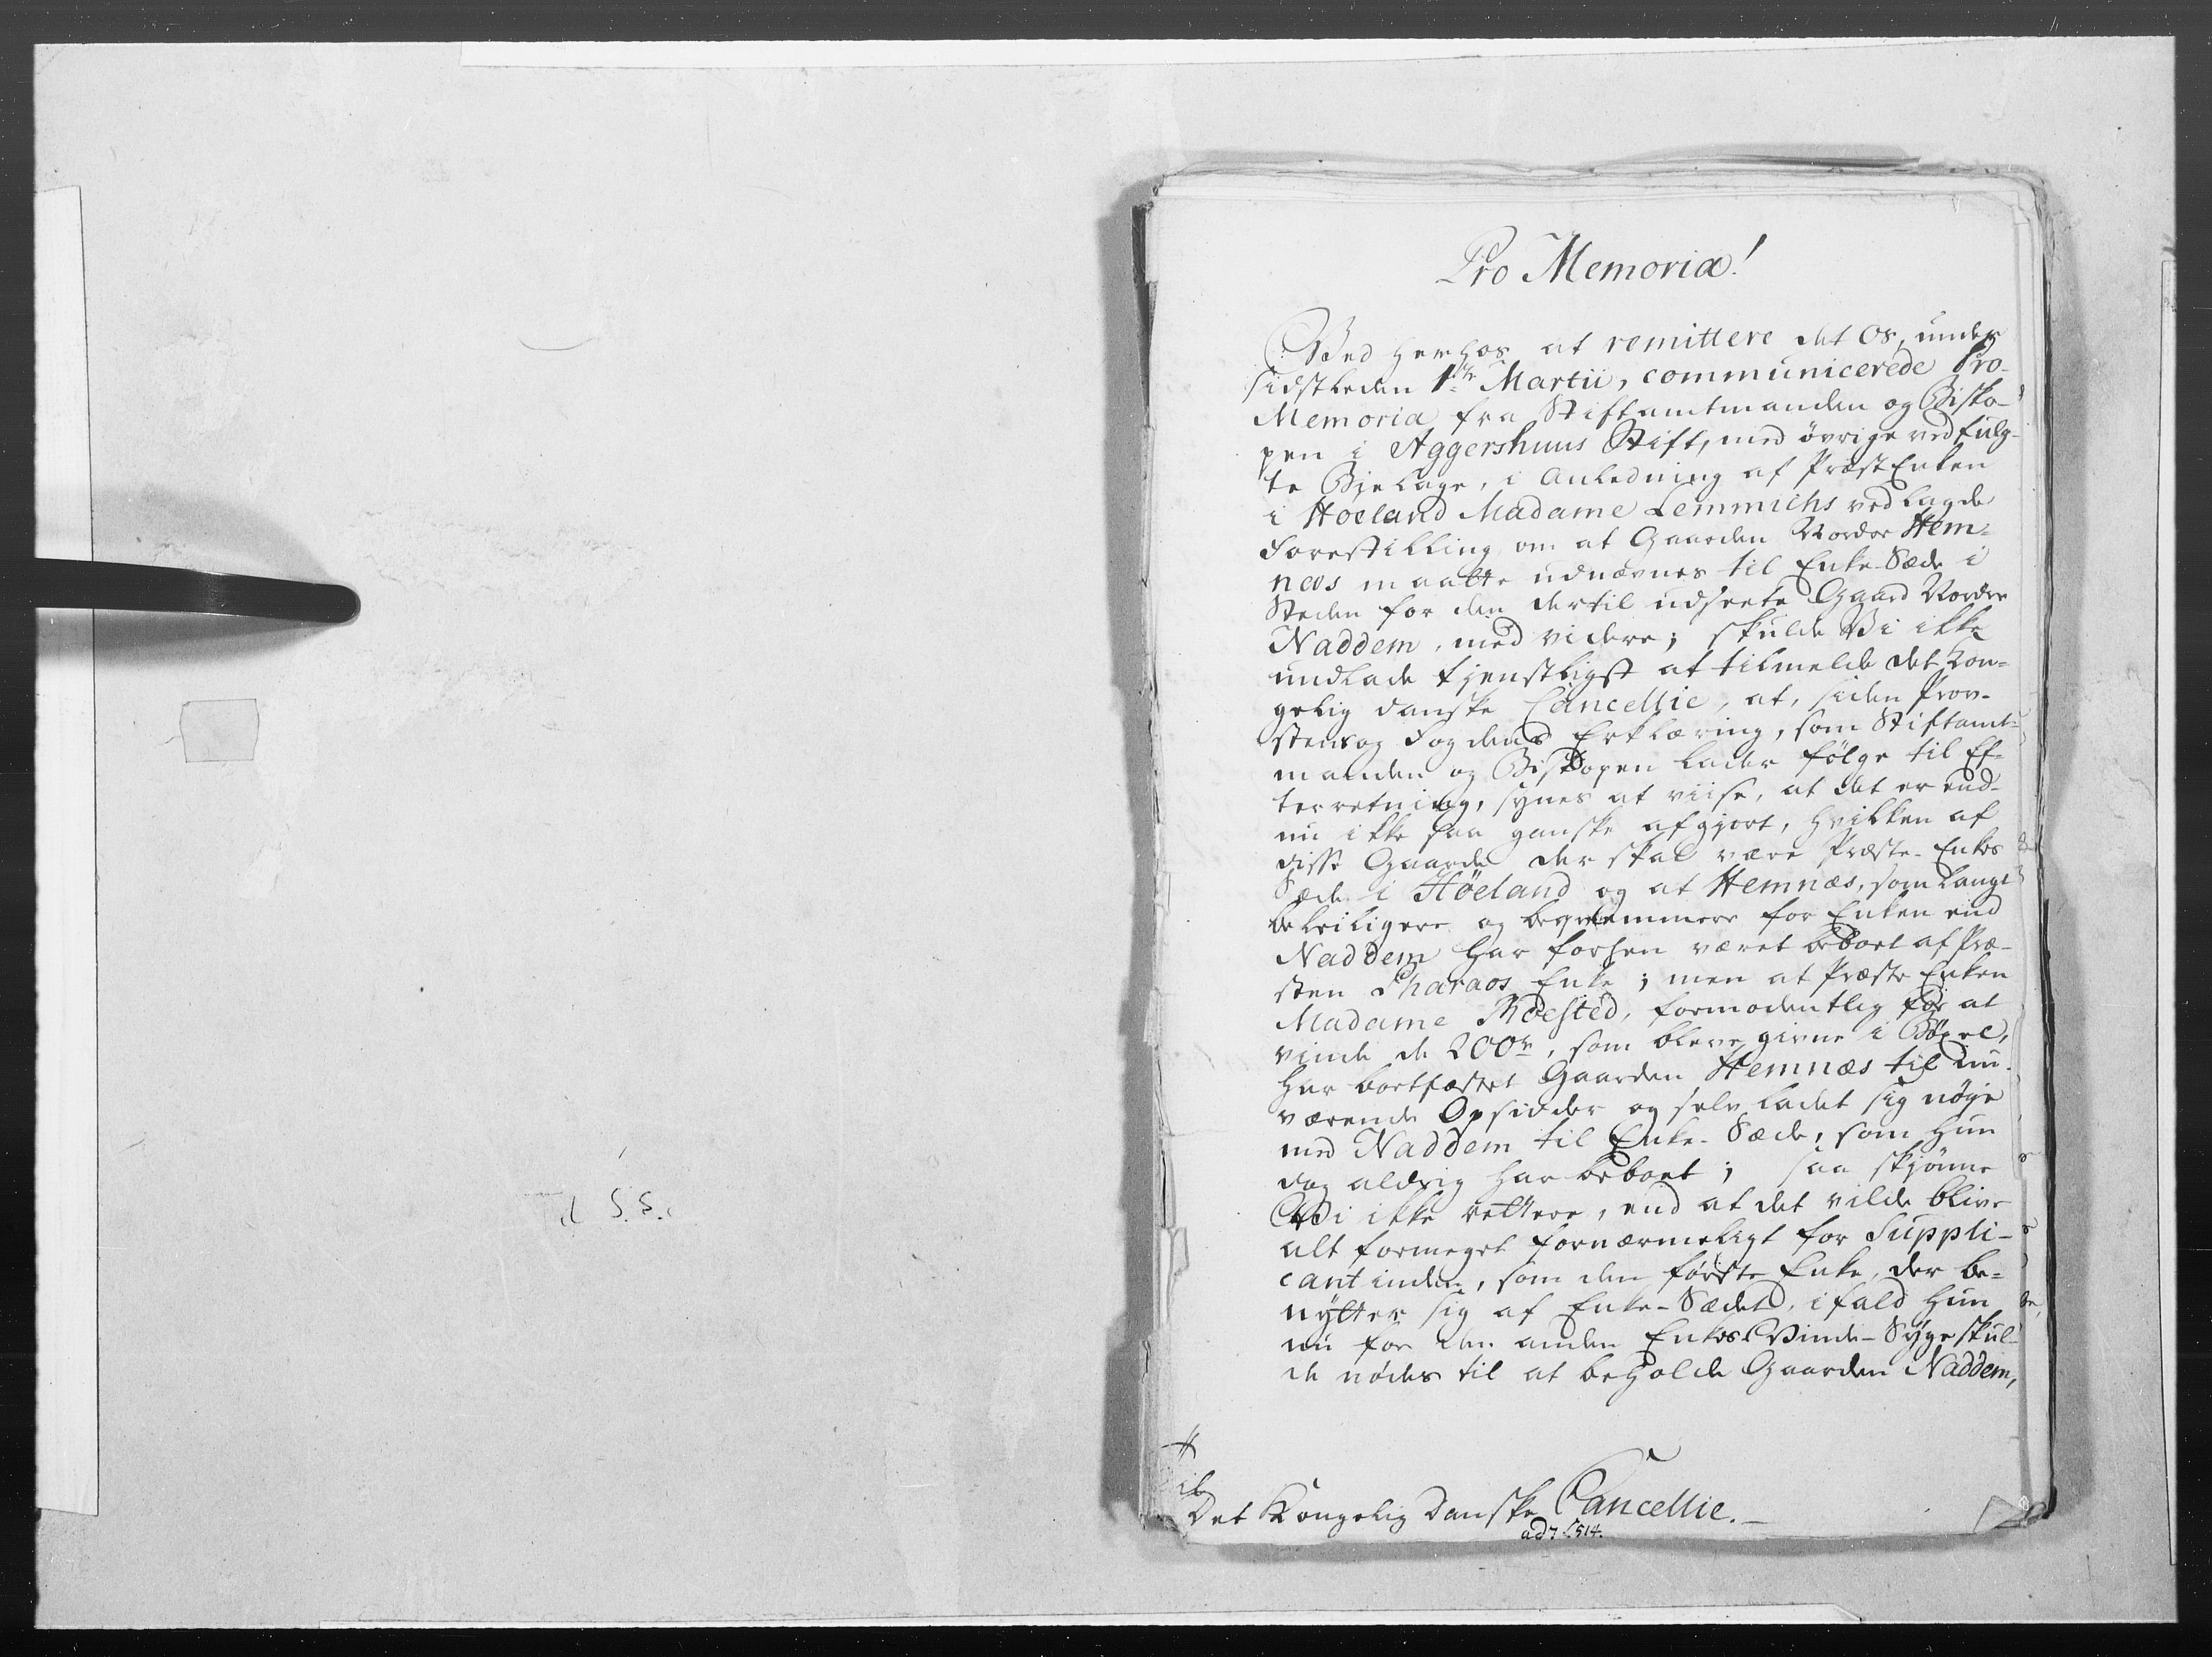 Pro Memoria!
Ved herhos at remittere det Os, under
sidstleden 1ste Martii, communicerede Pro-
Memoria fra Stiftamtmanden og Bisko-
pen i Aggershuus Stift, med øvrige vedfulg-
te Bielage, i Anledning af PræstEnken
i Hoeland Madame Lemmichs vedlagde
Forestilling om at Gaarden Nordre Hem-
næs maatte udnævnes til Enke-Sæde i
Steden for den dertil udseete Gaard Nordre
Naddem, med videre; skulde Vi ikke
undlade tienstligst at tilmelde det Kon-
gelig danske Cancellie, at, siden Prov-
stens og Fogdens Erklæring, som Stiftamt-
manden og Biskopen lader følge til Ef-
terretning, synes at viise, at det er end-
nu ikke saa ganske afgiort, hvilken af
disse Gaarde der skal være Præste-Enkes
Sæde i Höeland og at Hemnæs, som langt
beleiligere og beqvemmere for Enken end
Naddem har forhen været beboet af Præ-
sten Pharaos Enke; men at Præste Enken
Madame Moested, formodentlig for at
vinde de 200rd, som bleve givne i Bøxel,
har bortfæstet Gaarden Hemnæs til nu-
værende Opsidder og selv ladet sig nøje
med Naddem til Enke-Sæde, som hun
dog aldrig har beboet; saa skjønne
Vi ikke rettere, end at det vilde blive
alt formeget fornærmeligt for Suppli-
cantinden, som den første Enke, der be-
nytter sig af Enke-Sædet, ifald hun
nu for den anden Enkes Vinde-Syge skul-
de nødes til at beholde Gaarden Naddem,
Til
Det Kongelig Danske Cancellie.
ad 7 514.